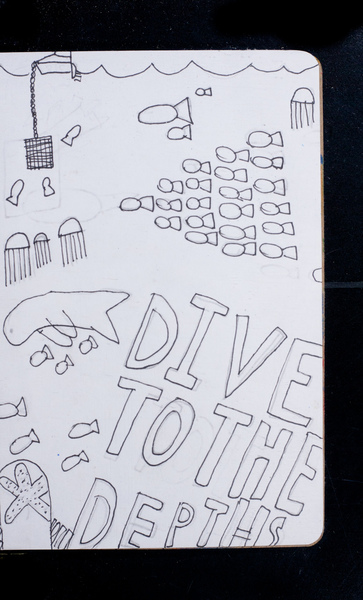 DIVE
TO THE
DEPTHS